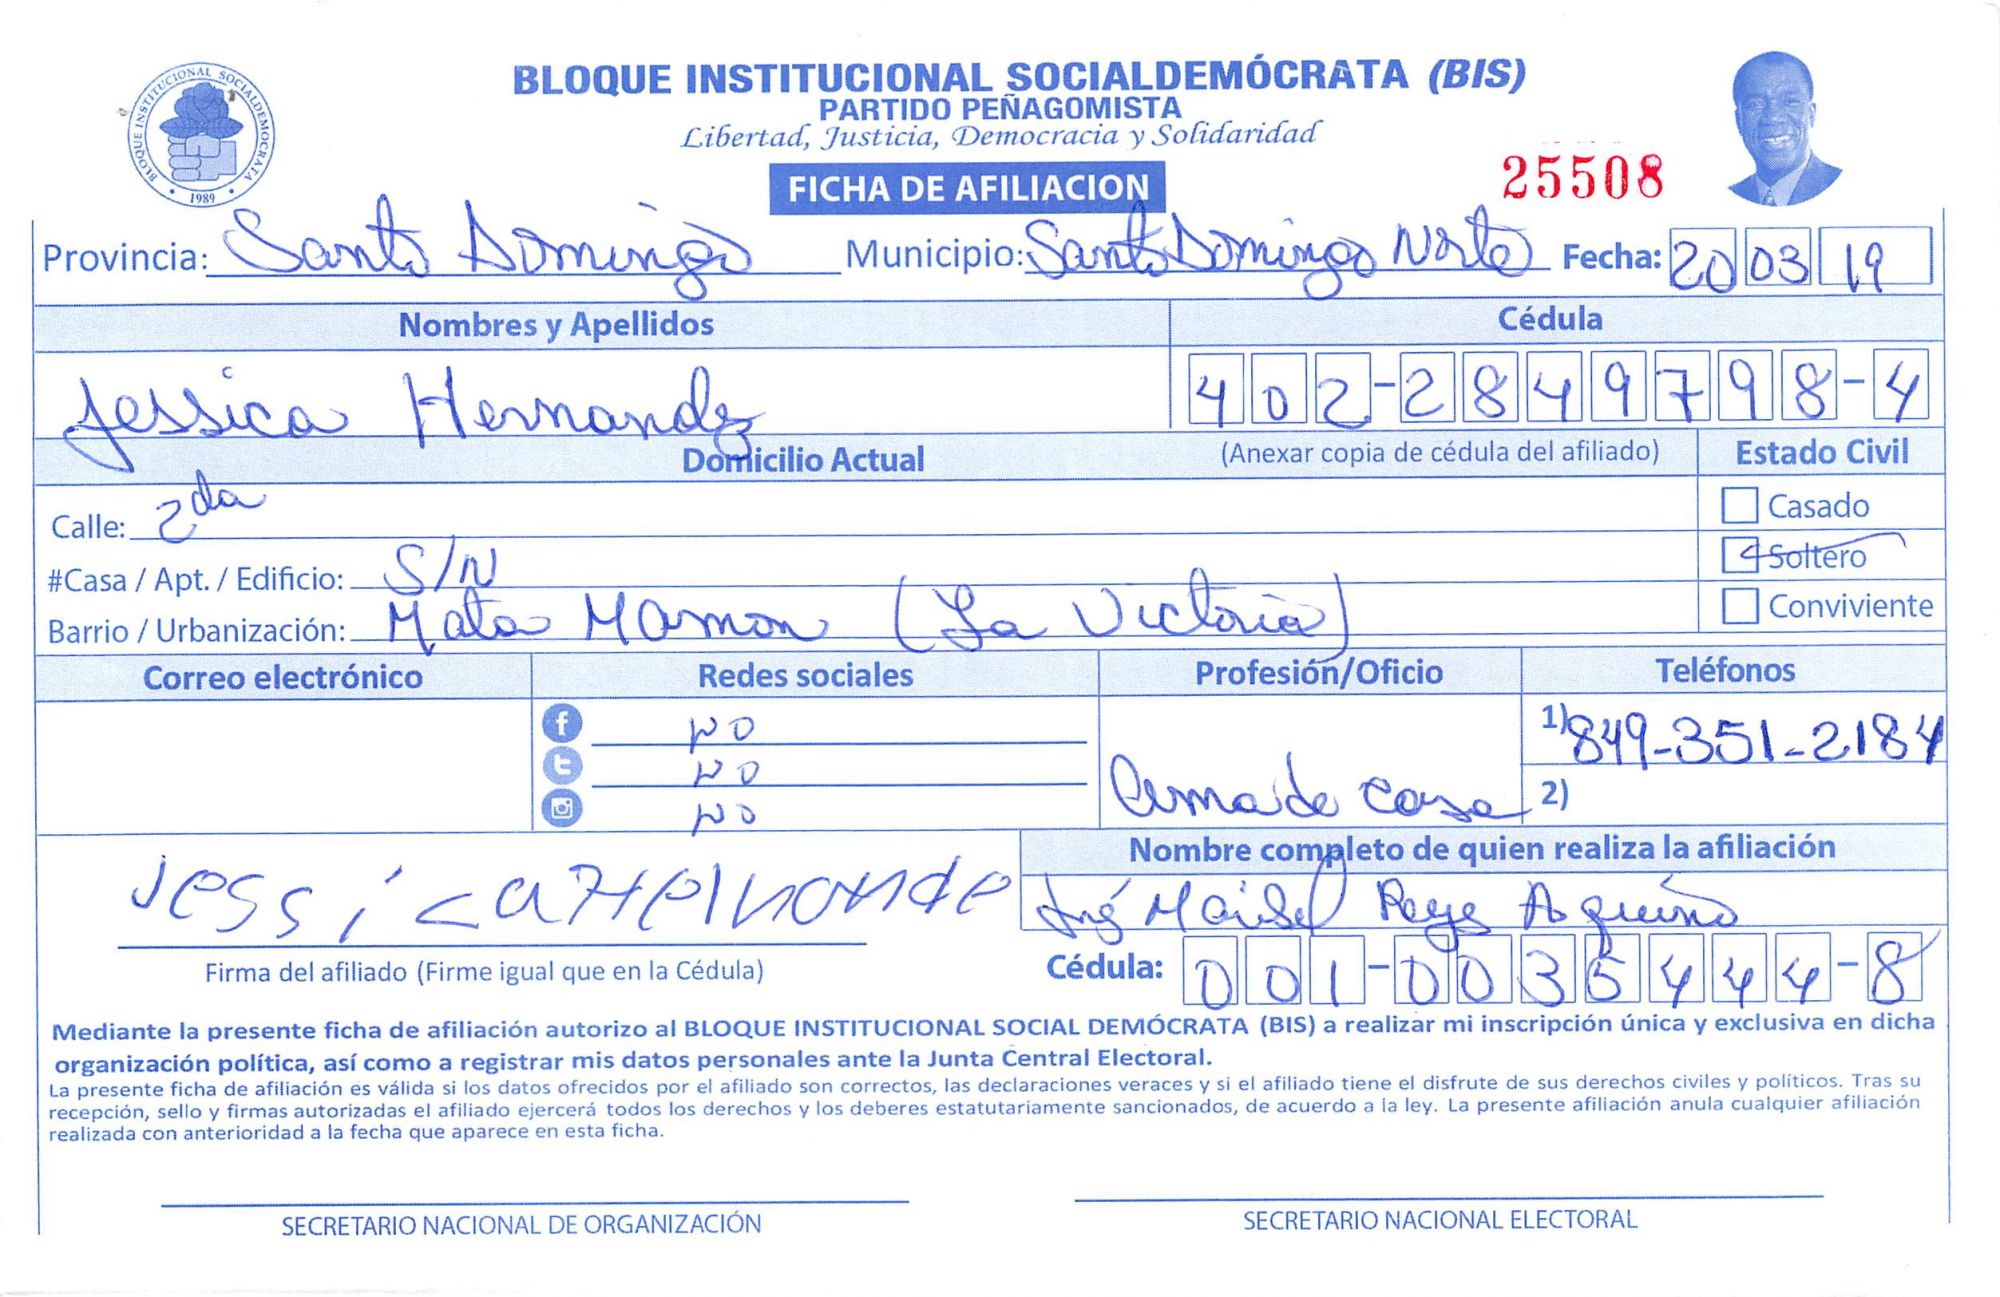 BLOQUE INSTITUCIONAL SOCIALDEMÓCRATA (BIS)
PARTIDO PEÑAGOMISTA
Libertad, Justicia, Democracia y Solidaridad
BLOQUE INSTITUCIONAL SOCIALDEMOCRATA
1989
25508
FICHA DE AFILIACION
Provincia: Santo Domingo Municipio: Santo Domingo Norte Fecha: 20 03 19
Nombres y Apellidos Cédula
Jessica Hernandez 402-2849798-4
Domicilio Actual (Anexar copia de cédula del afiliado) Estado Civil
Calle: 2da Casado
#Casa / Apt. / Edificio: S/N Soltero
Barrio / Urbanización: Mata Mamon (La Victoria) Conviviente
Correo electrónico Redes sociales Profesión/Oficio Teléfonos
NO 1) 849-351-2184
NO Ama de Casa 2)
NO
Nombre completo de quien realiza la afiliación
Jessica Hernande Ing Reye Aquino
Firma del afiliado (Firme igual que en la Cédula) Cédula: 001-0035444-8
Mediante la presente ficha de afiliación autorizo al BLOQUE INSTITUCIONAL SOCIAL DEMÓCRATA (BIS) a realizar mi inscripción única y exclusiva en dicha
organización política, así como a registrar mis datos personales ante la Junta Central Electoral.
La presente ficha de afiliación es válida si los datos ofrecidos por el afiliado son correctos, las declaraciones veraces y si el afiliado tiene el disfrute de sus derechos civiles y políticos. Tras su
recepción, sello y firmas autorizadas el afiliado ejercerá todos los derechos y los deberes estatutariamente sancionados, de acuerdo a la ley. La presente afiliación anula cualquier afiliación
realizada con anterioridad a la fecha que aparece en esta ficha.
SECRETARIO NACIONAL DE ORGANIZACIÓN SECRETARIO NACIONAL ELECTORAL